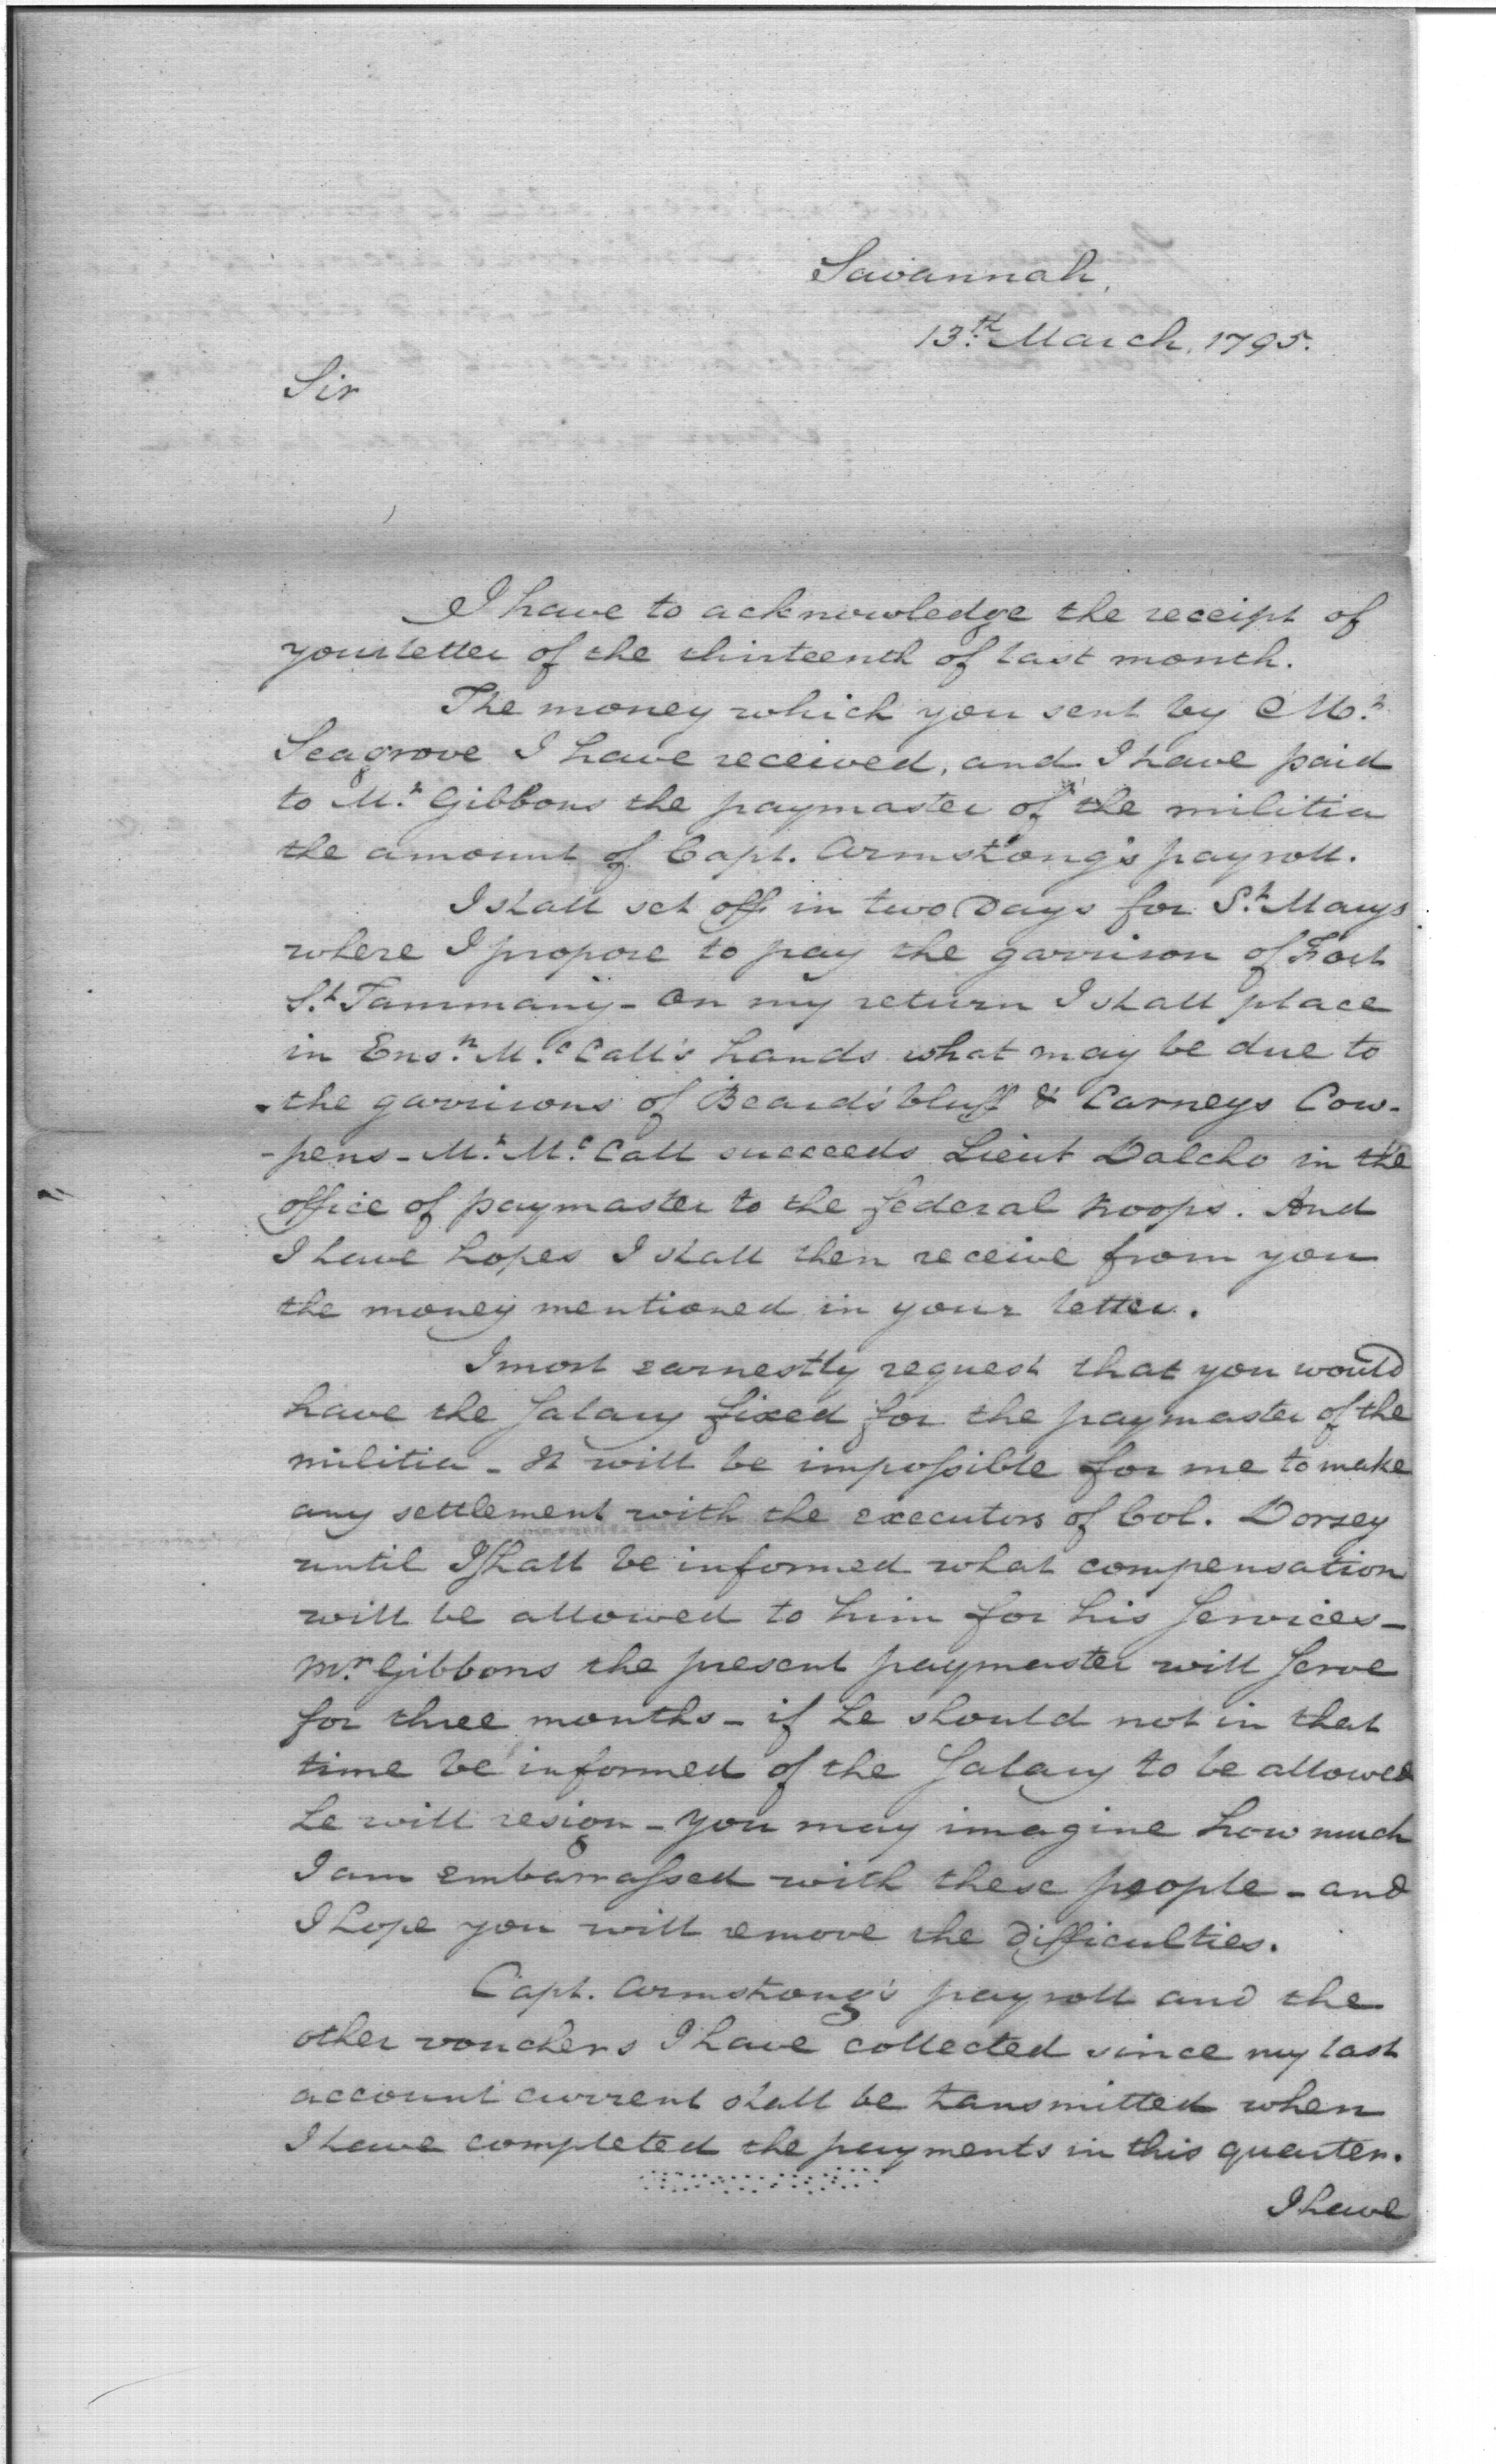 Savannah,
13th March, 1795.
Sir
I have to acknowledge the receipt of
your letter of the thirteenth of last month.
The money which you sent by Mr.
Seagrove I have received, and I have paid
to Mr. Gibbons the paymaster of the militia
the amount of Capt. Armstrong's payroll.
I shall set off in two Days for St. Marys
where I propose to pay the garrison of Fort
St. Tammany - On my return I shall place
in Ensn. McCall's hands what may be due to
the garrisons of Beards bluff & Carneys Cow-
-pens - Mr. McCall succeeds Lieut Dalcho in the
office of paymaster to the federal troops. And
I have hopes I shall then receive from you
the money mentioned in your letter.
I most earnestly request that you would
have the Salary fixed for the paymaster of the
militia - It will be impossible for me to make
any settlement with the executors of Col. Dorsey
until I shall be informed what compensation
will be allowed to him for his Services -
Mr. Gibbons the present paymaster will Serve
for three months - if he should not in that
time be informed of the Salary to be allowed
he will resign - You may imagine how much
I am embarrassed with these people - and
I hope you will remove the difficulties.
Capt. Armstrong's payroll and the
other vouchers I have collected since my last
account current shall be transmitted when
I have completed the payments in this quarter.
I have